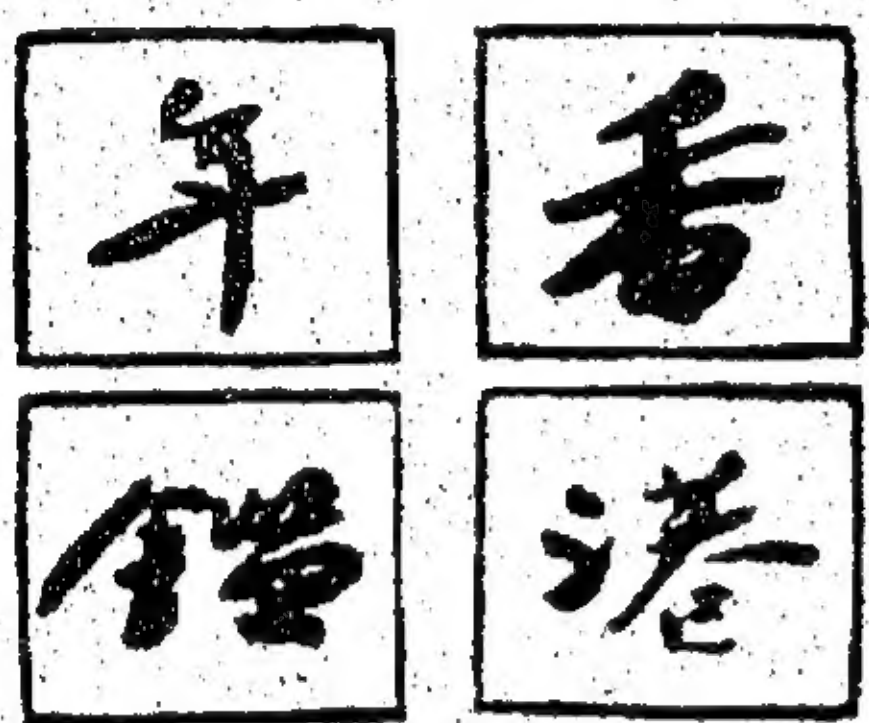 香港
年鑑